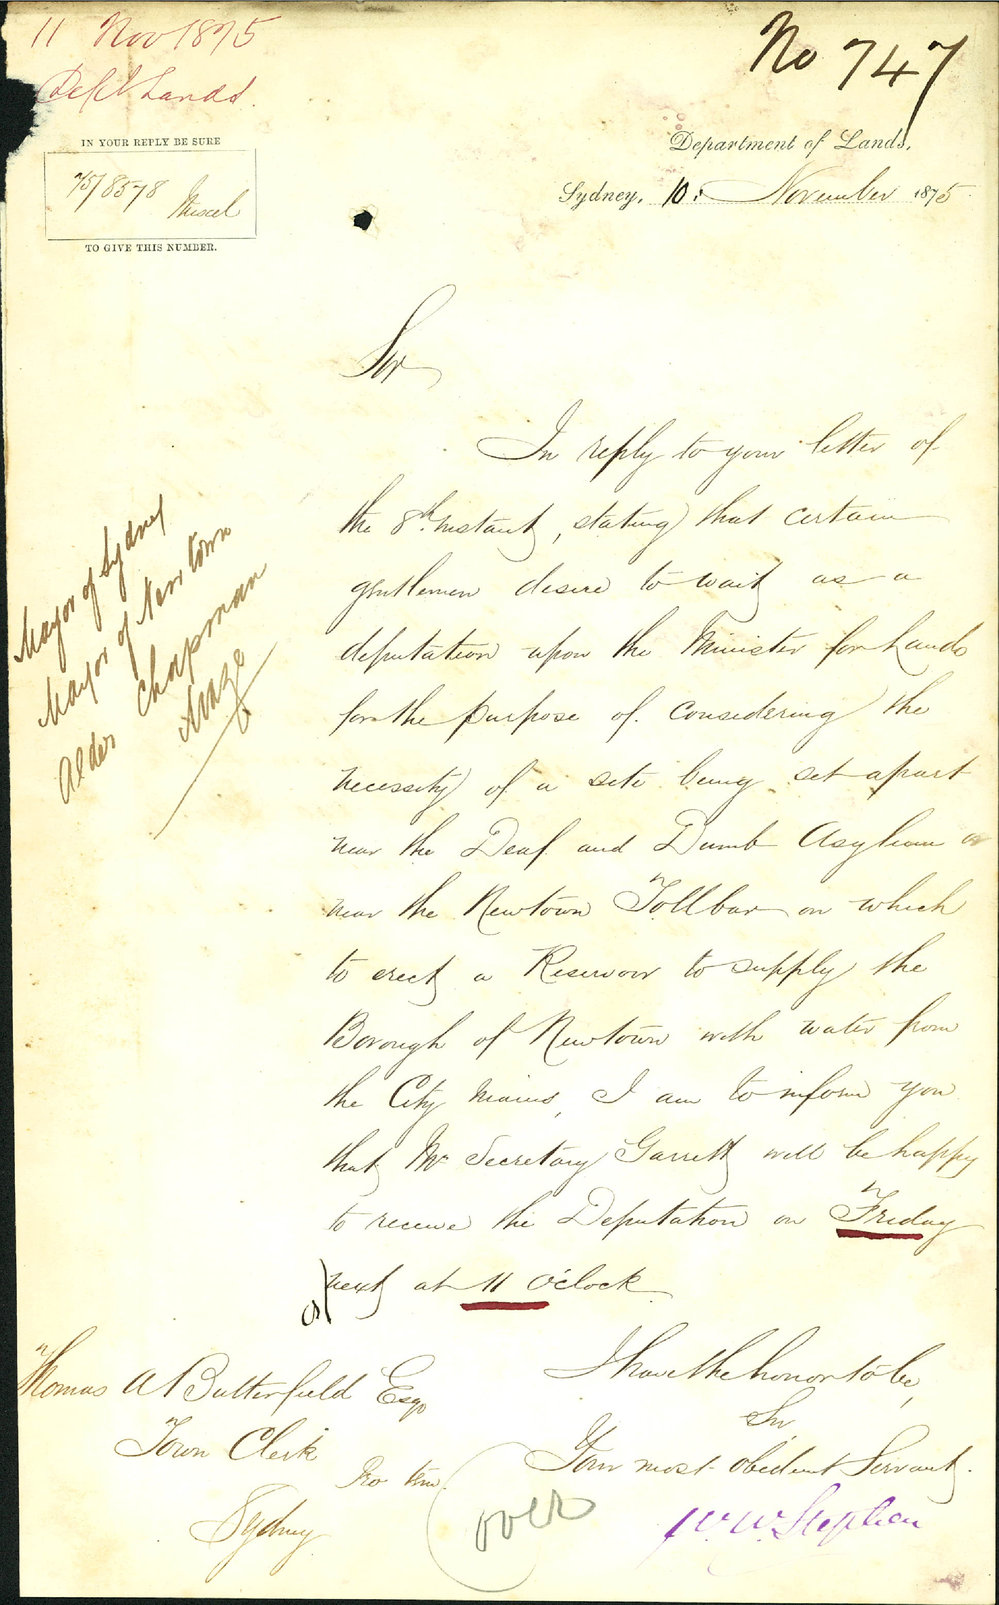 11 Nov 1875
Dept Lands.
No 747
IN YOUR REPLY BE SURE
75/8578
Miscel
TO GIVE THIS NUMBER.
Department of Lands,
Sydney, 10: November 1875
Sir
In reply to your letter of
the 8th instant, stating that certain
gentlemen desire to wait as a
deputation upon the Minister for Lands
for the purpose of considering the
necessity of a site being set apart
near the Deaf and Dumb Asylum or
near the Newtown Tollbar on which
to erect a Reservoir to supply the
Borough of Newtown with water from
the City Mains, I am to inform you
that Mr Secretary Garrett will be happy
to receive the Deputation on Friday
next at 11 o'clock
Mayor of Sydney
Mayor of Newtown
Alder Chapman
I have the honor to be,
Sir
Your most obedient Servant.
W.W. Stephen
Thomas A Butterfield Esqr
Town Clerk
Pro tem.
Sydney
over